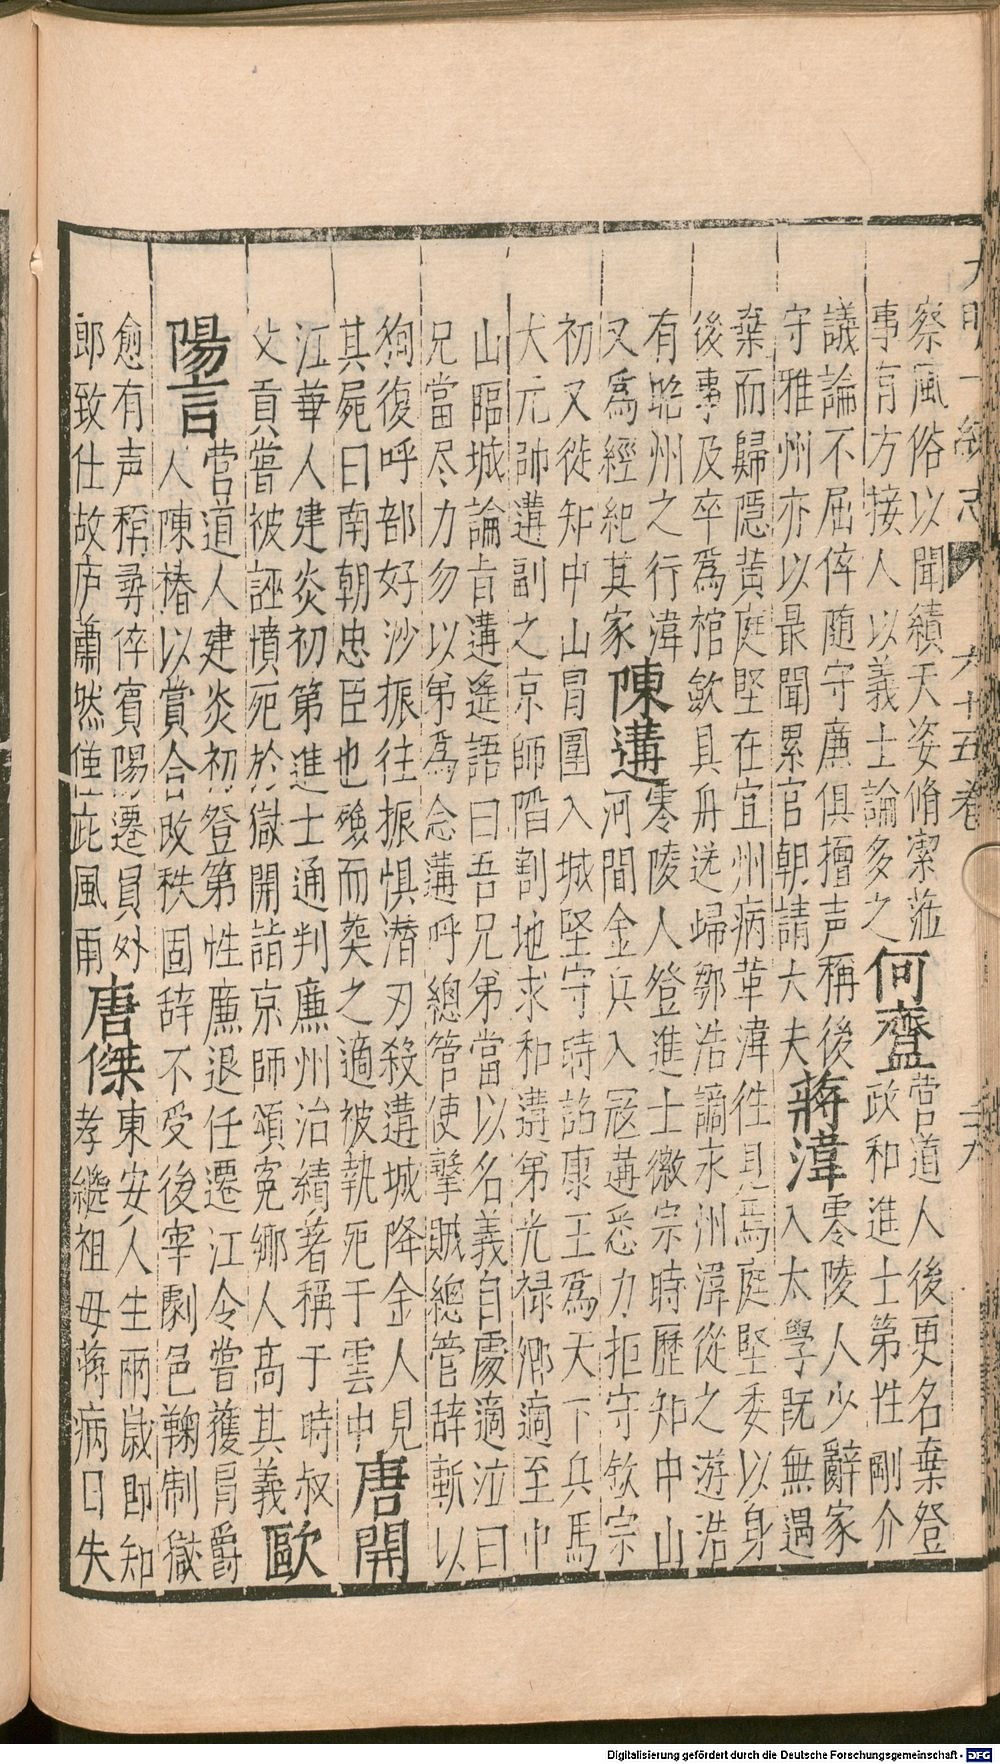 大明一統志 六十五卷
察風俗以聞續天姿脩潔蒞
事有方接人以義士論多之
何盤
營道人後更名棄登
政和進士第性剛介
議論不屈倅随守廉俱擅声稱後
守雅州亦以最聞累官朝請大夫
蔣湋
零陵人少辭家
入太學既無遇
棄而歸隱黃庭堅在宜州病革湋徃見焉庭堅委以身
後事及卒爲棺歛具舟送歸鄒浩謫永州湋從之游浩
有貽州之行湋
又爲經紀其家
陳遘
零陵人登進士徽宗時歷知中山
河間金兵入寇遘悉力拒守欽宗
初又徙知中山冒圍入城堅守時詔康王爲天下兵馬
大元帥遘副之京師陷割地求和遘弟光祿卿適至中
山臨城論旨遘遙語曰吾兄弟當以名義自處適泣曰
兄當尽力勿以弟爲念遘呼總管使擊賊總管辞斬以
狥復呼部好沙振往振惧潛刃殺遘城降金人見
其屍曰南朝忠臣也殮而葬之適被執死于雲中
唐開
江華人建炎初第進士通判廉州治績著稱于時叔
父貢嘗被誣墳死於獄開詣京師頌寃鄉人高其義
歐
陽言
營道人建炎初登第性廉退任遷江令嘗獲冒爵
人陳椿以賞合改秩固辞不受後宰劇邑鞠制獄
愈有声稱尋倅賓陽遷員外
郎致仕故庐蕭然僅庇風雨
唐傑
東安人生兩歲即知
孝繼祖母蒋病目失
Digitalisierung gefördert durch die Deutsche Forschungsgemeinschaft - DFG